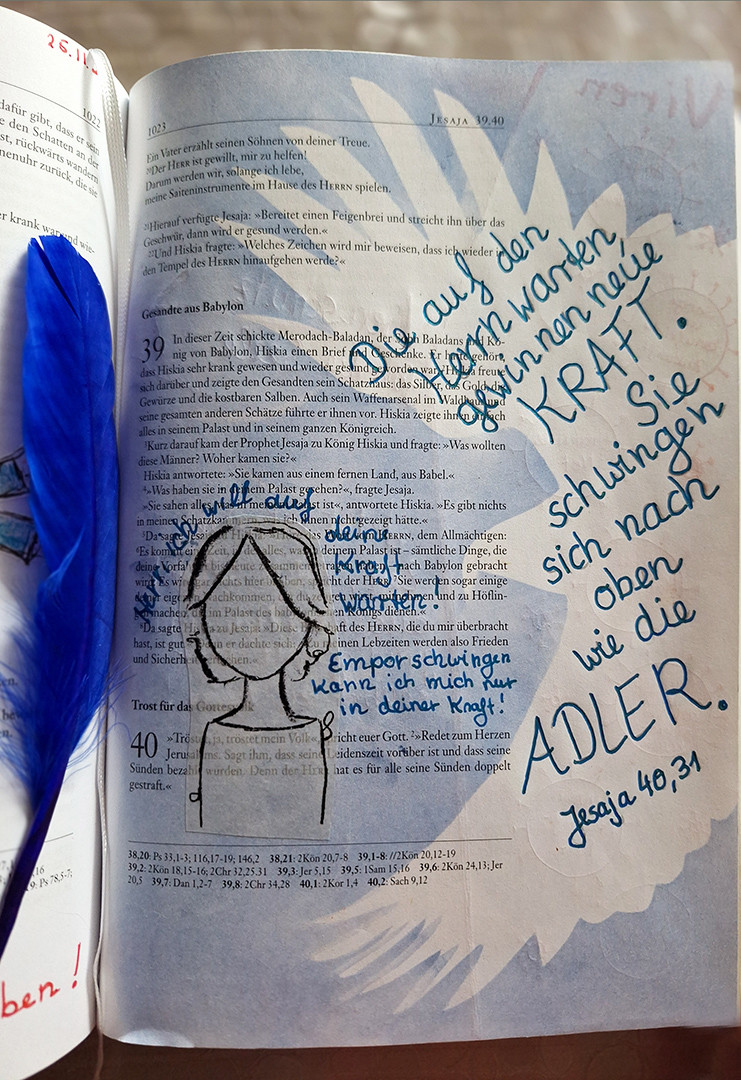 26.11.
1022
dafür gibt, dass er sein
e den Schatten an der
st, rückwärts wandern
nenuhr zurück, die sie
er krank war und wie-
1023
JESAJA 39,40
Ein Vater erzählt seinen Söhnen von deiner Treue.
20Der HERR ist gewillt, mir zu helfen!
Darum werden wir, solange ich lebe,
meine Saiteninstrumente im Hause des HERRN spielen.
21Hierauf verfügte Jesaja: »Bereitet einen Feigenbrei und streicht ihn über das
Geschwür, dann wird er gesund werden.«
22Und Hiskia fragte: »Welches Zeichen wird mir beweisen, dass ich wieder in
den Tempel des HERRN hinaufgehen werde?«
Gesandte aus Babylon
39 In dieser Zeit schickte Merodach-Baladan, der Sohn Baladans Kö-
nig von Babylon, Hiskia einen Brief und Geschenke. Er hatte gehört,
dass Hiskia sehr krank gewesen und wieder gesund geworden war. Hiskia freute
sich darüber und zeigte den Gesandten sein Schatzhaus: das Silber, das Gold, die
Gewürze und die kostbaren Salben. Auch sein Waffenarsenal im Waldhaus und
seine gesamten anderen Schätze führte er ihnen vor. Hiskia zeigte ihnen einfach
alles in seinem Palast und in seinem ganzen Königreich.
3Kurz darauf kam der Prophet Jesaja zu König Hiskia und fragte: »Was wollten
diese Männer? Woher kamen sie?«
Hiskia antwortete: »Sie kamen aus einem fernen Land, aus Babel.«
4»Was haben sie in deinem Palast gesehen?«, fragte Jesaja.
»Sie sahen alles, was in meinem Palast ist«, antwortete Hiskia. »Es gibt nichts
in meinen Schatzkammern, was ich ihnen nicht gezeigt hätte.«
5Da sagte HERRN, dem Allmächtigen:
6Es kommt eine Zeit, alles, was in deinem Palast ist – sämtliche Dinge, die
deine Vorfahren bis heute nach Babylon gebracht
wird der HERR. 7Sie werden sogar einige
und zu Höflin-
gen machen, die im Palast des Königs dienen.«
8Da sagte Hiskia zu Jesaja: »Diese Botschaft des HERRN, die du mir überbracht
hast, ist gut.« Denn er dachte sich: Zu meinen Lebzeiten werden also Frieden
und Sicherheit
Trost für das Gottesvolk
40 »Tröstet, ja, tröstet mein Volk«, spricht euer Gott. 2»Redet zum Herzen
Jerusalems. Sagt ihm, dass seine Leidenszeit vorüber ist und dass seine
Sünden bezahlt wurden. Denn der HERR hat es für alle seine Sünden doppelt
gestraft.«
38,20: Ps 33,1-3; 116,17-19; 146,2 38,21: 2Kön 20,7-8 39,1-8: //2Kön 20,12-19
39,2: 2Kön 18,15-16; 2Chr 32,25.31 39,3: Jer 5,15 39,5: 1Sam 15,16 39,6: 2Kön 24,13; Jer
20,5 39,7: Dan 1,2-7 39,8: 2Chr 34,28 40,1: 2Kor 1,4 40,2: Sach 9,12
Die auf den
Herrn warten,
gewinnen neue
KRAFT.
Sie
schwingen
sich nach
oben
wie die
ADLER.
Jesaja 40,31
Herr ich will auf
deine
Kraft
warten!
Empor schwingen
kann ich mich nur
in deiner Kraft!
Ps 78,5-7;
ben!